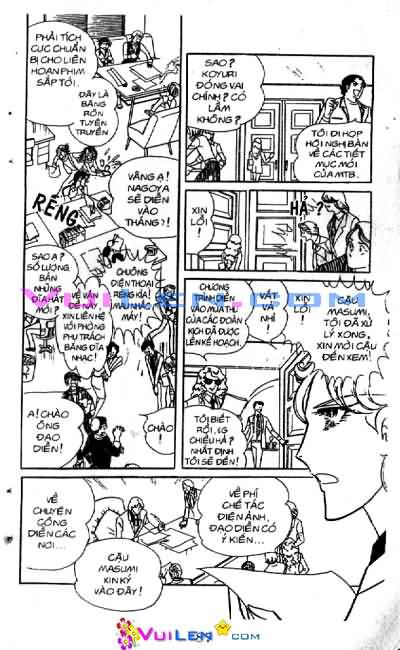 PHẢI TÍCH
CỰC CHUẨN
BỊ CHO LIÊN
HOAN PHIM
SẮP TỚI.
ĐÂY LÀ
BĂNG
RÔN
TUYÊN
TRUYỀN
VÂNG Ạ!
NAGOYA
SẼ DIỄN
VÀO
THÁNG ?!
RENG
SAO Ạ?
SỐ LƯỢNG
BÁN
NHỮNG
DĨA HÁT
MỚI?
VỀ VẤN
ĐỀ NÀY,
XIN LIÊN HỆ
VỚI PHÒNG
PHỤ TRÁCH
BĂNG DĨA
NHẠC!
CHUÔNG
ĐIỆN THOẠI
RENG KÌA!
MAU NHẤC
MÁY!
A! CHÀO
ÔNG
ĐẠO
DIỄN!
CHÀO
!
SAO?
KOYURI
ĐÓNG VAI
CHÍNH? CÓ
LẦM
KHÔNG?
TÔI ĐI HỌP
HỘI NGHỊ BÀN
VỀ CÁC TIẾT
MỤC MỚI
CỦA MTB.
XIN
LỖI
!
HẢ ?
CHƯƠNG
TRÌNH DIỄN
VÀO MÙA THU
CỦA CÁC ĐOÀN
KỊCH ĐÃ ĐƯỢC
LÊN KẾ HOẠCH.
VẤT
VẢ
NHỈ
XIN
LỖI
!
CẬU
MASUMI,
TÔI ĐÃ XỬ
LÝ XONG,
XIN MỜI CẬU
ĐẾN XEM!
TÔI BIẾT
RỒI,
CHIỀU HẢ?
NHẤT ĐỊNH
TÔI SẼ ĐẾN!
VỀ
CHUYỆN
CÔNG
DIỄN CÁC
NƠI...
CẬU
MASUMI
XIN KÝ
VÀO ĐÂY!
VỀ PHÍ
CHẾ TÁC
ĐIỆN ẢNH,
ĐẠO DIỄN CÓ
Ý KIẾN...
VUILEN.COM
VUILEN